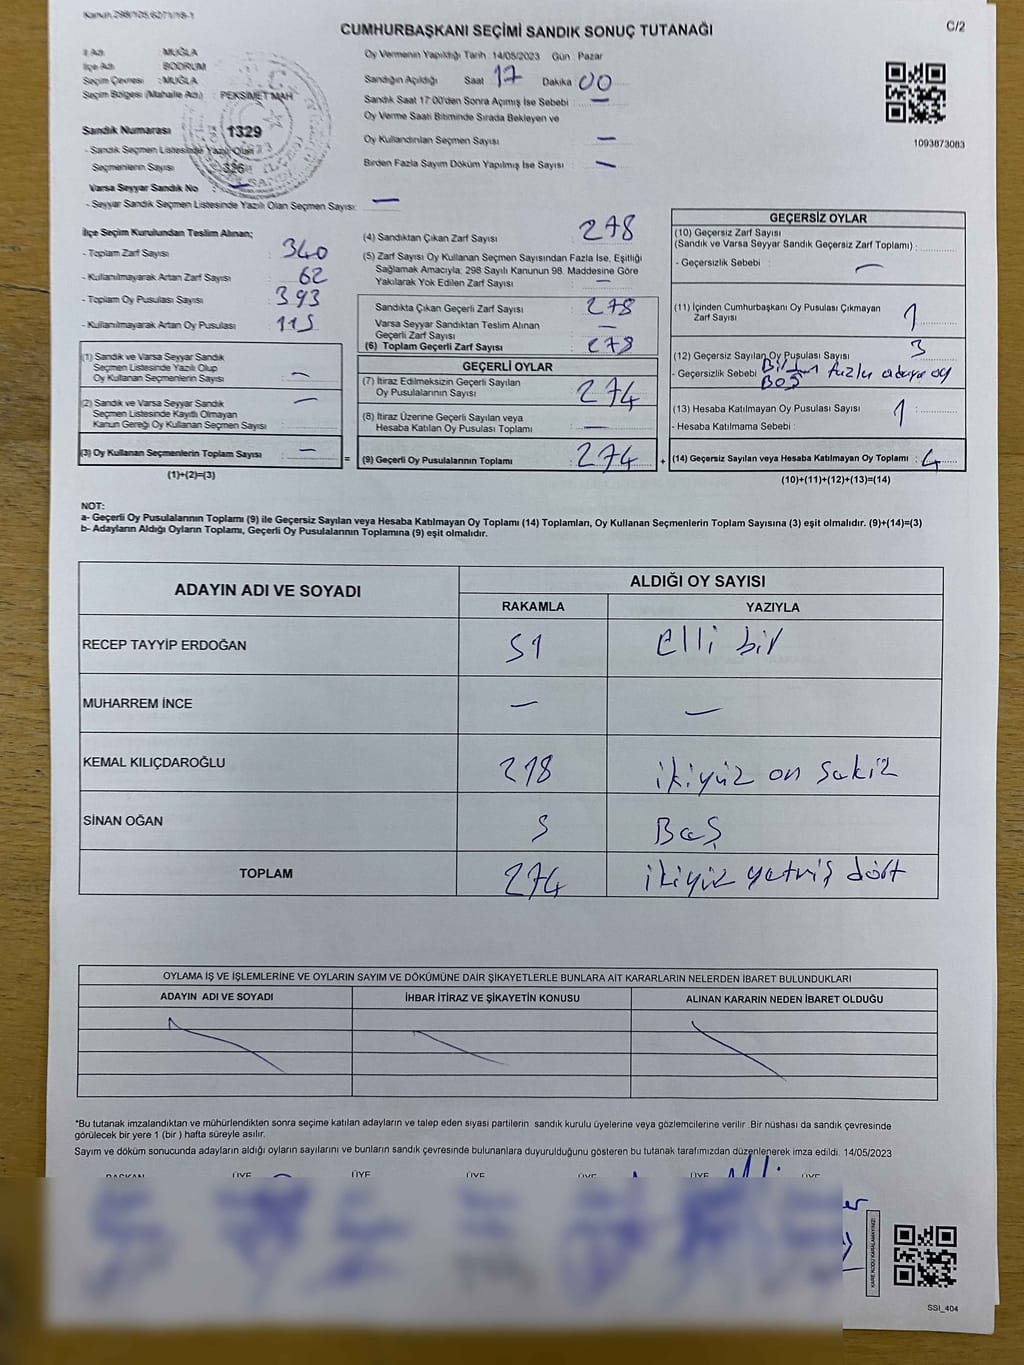 Kanun,298/105,6271/18-1
CUMHURBAŞKANI SEÇİMİ SANDIK SONUÇ TUTANAĞI
C/2
İl Adı : MUĞLA
İlçe Adı : BODRUM
Seçim Çevresi : MUĞLA
Seçim Bölgesi (Mahalle Adı) : PEKSİMET MAH
Sandık Numarası 1329
- Sandık Seçmen Listesinde Yazılı Olan
Seçmenlerin Sayısı : 326
Varsa Seyyar Sandık No : —
- Seyyar Sandık Seçmen Listesinde Yazılı Olan Seçmen Sayısı: —
Oy Vermenin Yapıldığı Tarih : 14/05/2023 Gün : Pazar
Sandığın Açıldığı Saat 17 Dakika 00
Sandık Saat 17:00'den Sonra Açımış İse Sebebi : —
Oy Verme Saati Bitiminde Sırada Bekleyen ve
Oy Kullandırılan Seçmen Sayısı : —
Birden Fazla Sayım Döküm Yapılmış İse Sayısı : —
1093873083
İlçe Seçim Kurulundan Teslim Alınan;
- Toplam Zarf Sayısı : 340
- Kullanılmayarak Artan Zarf Sayısı : 62
- Toplam Oy Pusulası Sayısı : 393
- Kullanılmayarak Artan Oy Pusulası : 115
(1) Sandık ve Varsa Seyyar Sandık
Seçmen Listesinde Yazılı Olup
Oy Kullanan Seçmenlerin Sayısı : —
(2) Sandık ve Varsa Seyyar Sandık
Seçmen Listesinde Kayıtlı Olmayan
Kanun Gereği Oy Kullanan Seçmen Sayısı : —
(3) Oy Kullanan Seçmenlerin Toplam Sayısı : — =
(1)+(2)=(3)
(4) Sandıktan Çıkan Zarf Sayısı : 278
(5) Zarf Sayısı Oy Kullanan Seçmen Sayısından Fazla İse, Eşitliği
Sağlamak Amacıyla, 298 Sayılı Kanunun 98. Maddesine Göre
Yakılarak Yok Edilen Zarf Sayısı : —
Sandıkta Çıkan Geçerli Zarf Sayısı : 278
Varsa Seyyar Sandıktan Teslim Alınan
Geçerli Zarf Sayısı : —
(6) Toplam Geçerli Zarf Sayısı : 278
GEÇERLİ OYLAR
(7) İtiraz Edilmeksizin Geçerli Sayılan
Oy Pusulalarının Sayısı : 274
(8) İtiraz Üzerine Geçerli Sayılan veya
Hesaba Katılan Oy Pusulası Toplamı : —
(9) Geçerli Oy Pusulalarının Toplamı : 274 +
GEÇERSİZ OYLAR
(10) Geçersiz Zarf Sayısı
(Sandık ve Varsa Seyyar Sandık Geçersiz Zarf Toplamı) :
- Geçersizlik Sebebi : —
(11) İçinden Cumhurbaşkanı Oy Pusulası Çıkmayan
Zarf Sayısı : 1
(12) Geçersiz Sayılan Oy Pusulası Sayısı : 3
- Geçersizlik Sebebi fazla adaya oy
BOŞ
(13) Hesaba Katılmayan Oy Pusulası Sayısı : 1
- Hesaba Katılmama Sebebi :
(14) Geçersiz Sayılan veya Hesaba Katılmayan Oy Toplamı : 4
(10)+(11)+(12)+(13)=(14)
NOT:
a- Geçerli Oy Pusulalarının Toplamı (9) ile Geçersiz Sayılan veya Hesaba Katılmayan Oy Toplamı (14) Toplamları, Oy Kullanan Seçmenlerin Toplam Sayısına (3) eşit olmalıdır. (9)+(14)=(3)
b- Adayların Aldığı Oyların Toplamı, Geçerli Oy Pusulalarının Toplamına (9) eşit olmalıdır.
ADAYIN ADI VE SOYADI ALDIĞI OY SAYISI
RAKAMLA YAZIYLA
RECEP TAYYİP ERDOĞAN 51 Elli bir
MUHARREM İNCE — —
KEMAL KILIÇDAROĞLU 218 ikiyüz on sekiz
SİNAN OĞAN 5 Beş
TOPLAM 274 ikiyüz yetmiş dört
OYLAMA İŞ VE İŞLEMLERİNE VE OYLARIN SAYIM VE DÖKÜMÜNE DAİR ŞİKAYETLERLE BUNLARA AİT KARARLARIN NELERDEN İBARET BULUNDUKLARI
ADAYIN ADI VE SOYADI İHBAR İTİRAZ VE ŞİKAYETİN KONUSU ALINAN KARARIN NEDEN İBARET OLDUĞU
*Bu tutanak imzalandıktan ve mühürlendikten sonra seçime katılan adayların ve talep eden siyasi partilerin sandık kurulu üyelerine veya gözlemcilerine verilir .Bir nüshası da sandık çevresinde
görülecek bir yere 1 (bir ) hafta süreyle asılır.
Sayım ve döküm sonucunda adayların aldığı oyların sayılarını ve bunların sandık çevresinde bulunanlara duyurulduğunu gösteren bu tutanak tarafımızdan düzenlenerek imza edildi. 14/05/2023
BAŞKAN ÜYE ÜYE ÜYE ÜYE ÜYE ÜYE
KARE KODU KARALAMAYINIZ!
SSI_404